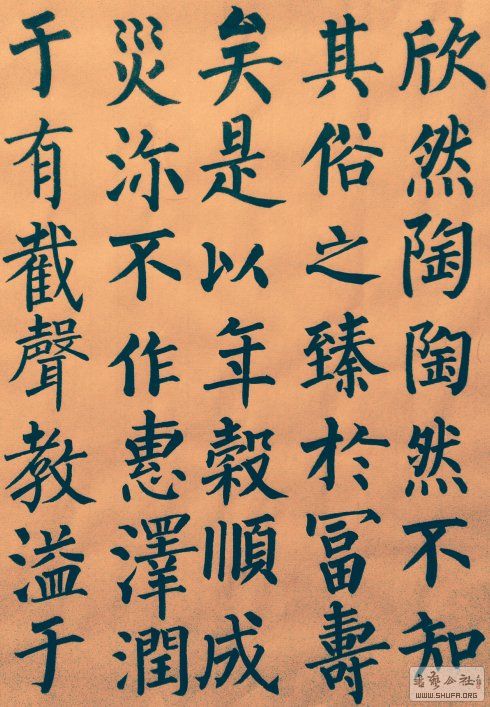 欣然陶陶然不知
其俗之臻於冨壽
矣是以年穀順成
災沵不作惠澤潤
于有截聲教溢于
WWW.SHUFA.ORG